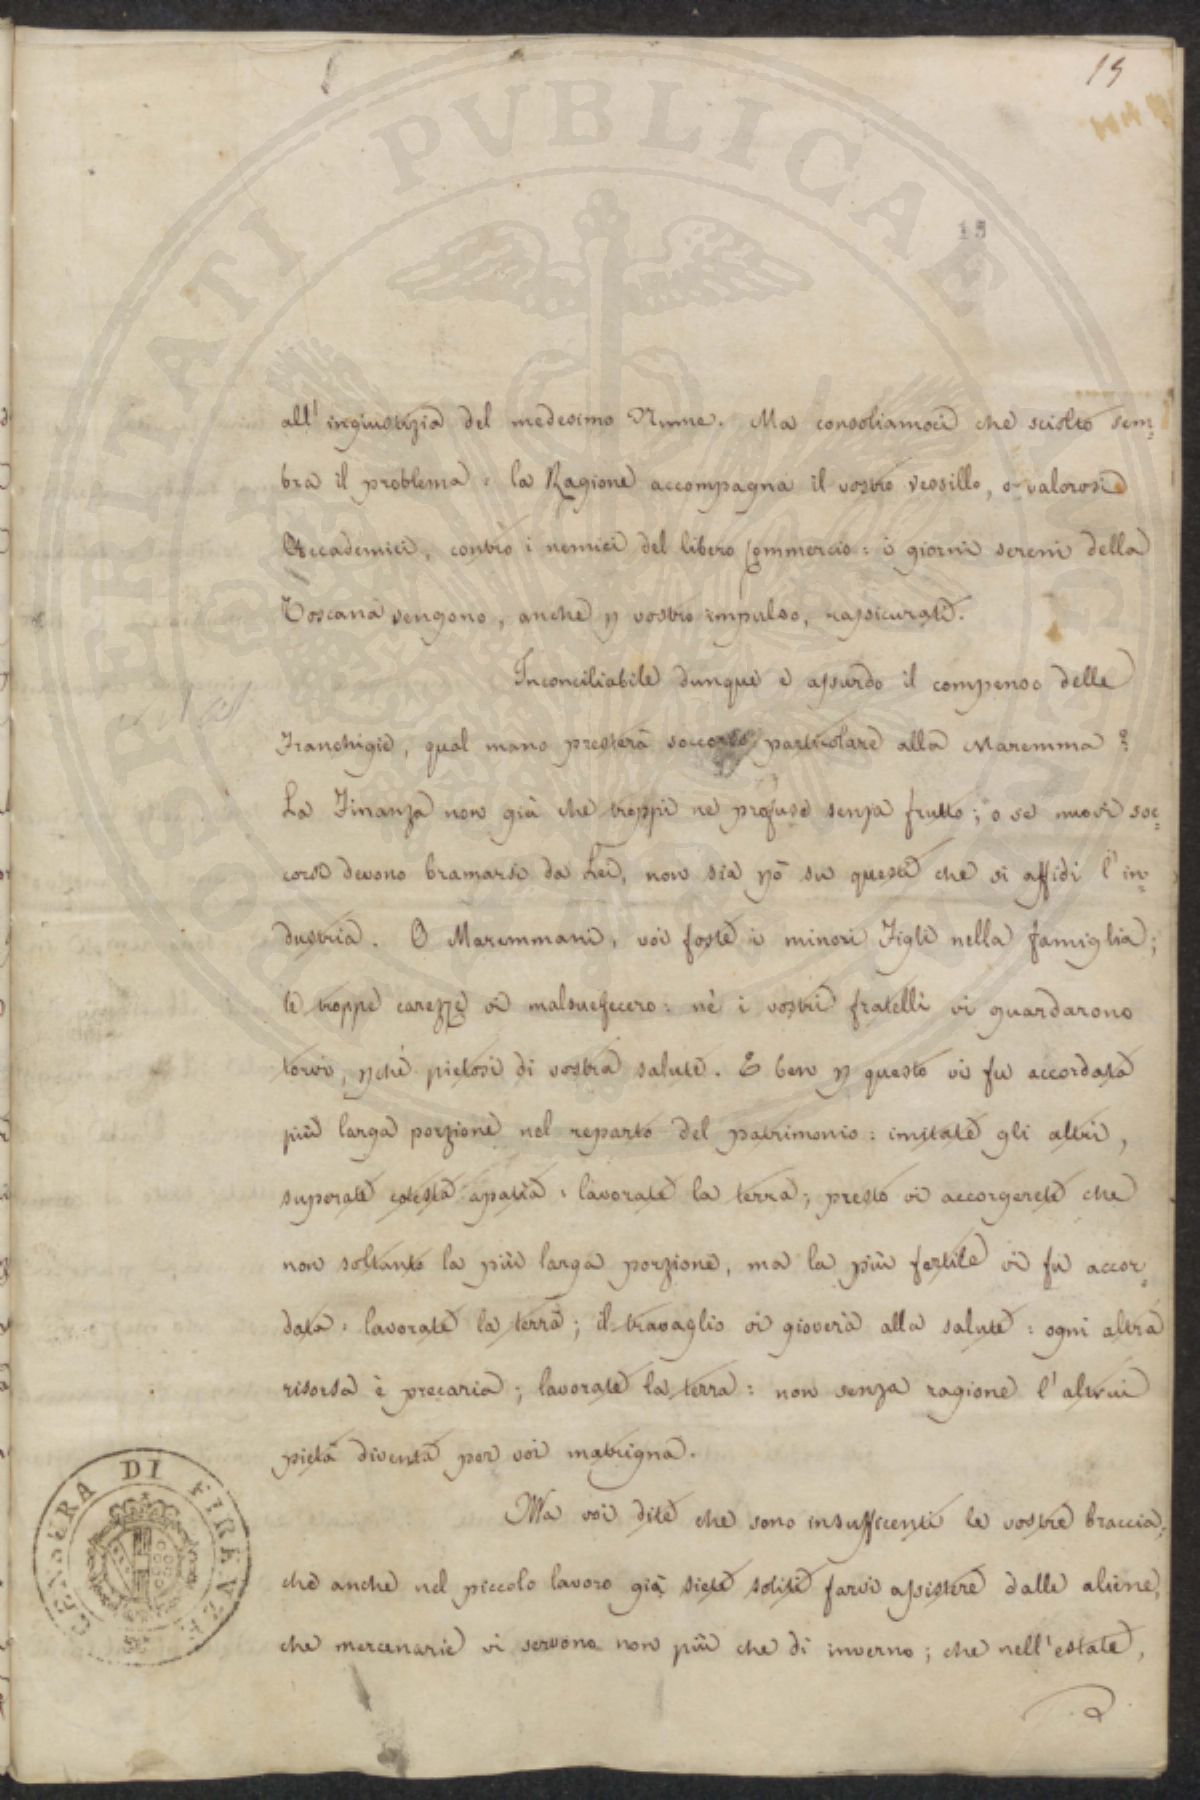 15
15
all' ingiustizia del medesimo Nume. Ma consoliamoci che sciolto sem=
bra il problema: la Ragione accompagna il vostro vessillo, o valorosi
Accademici, contro i nemici del libero Commercio: i giorni sereni della
Toscana vengono, anche p vostro impulso, rassicurati.
Inconciliabile dunque e assurdo il compenso delle
Franchigie, qual mano presterà soccorso particolare alla Maremma?
La Finanza non già che troppi ne profuse senza frutto; o se nuovi soc=
corsi devono bramarsi da Lei, non sia pò su questi che si affidi l'in=
dustria. O Maremmani, voi foste i minori Figli nella famiglia;
le troppe carezze vi malsuefecero: nè i vostri fratelli vi guardarono
torvi, pchè pietosi di vostra salute. E ben p questo vi fu accordata
più larga porzione nel reparto del patrimonio: imitate gli altri,
superate cotesta apatia: lavorate la terra; presto vi accorgerete che
non soltanto la più larga porzione, ma la più fertile vi fu accor=
data: lavorate la terra; il travaglio vi gioverà alla salute: ogni altra
risorsa è precaria; lavorate la terra: non senza ragione l'altrui
pietà diventa per voi matrigna.
Ma voi dite che sono insufficenti le vostre braccia;
che anche nel piccolo lavoro già siete soliti farvi assistere dalle aliene,
che mercenarie vi servono non più che di inverno; che nell'estate,
CENSURA DI FIRENZE
PROSPERITATI PUBLICAE AUGENDAE